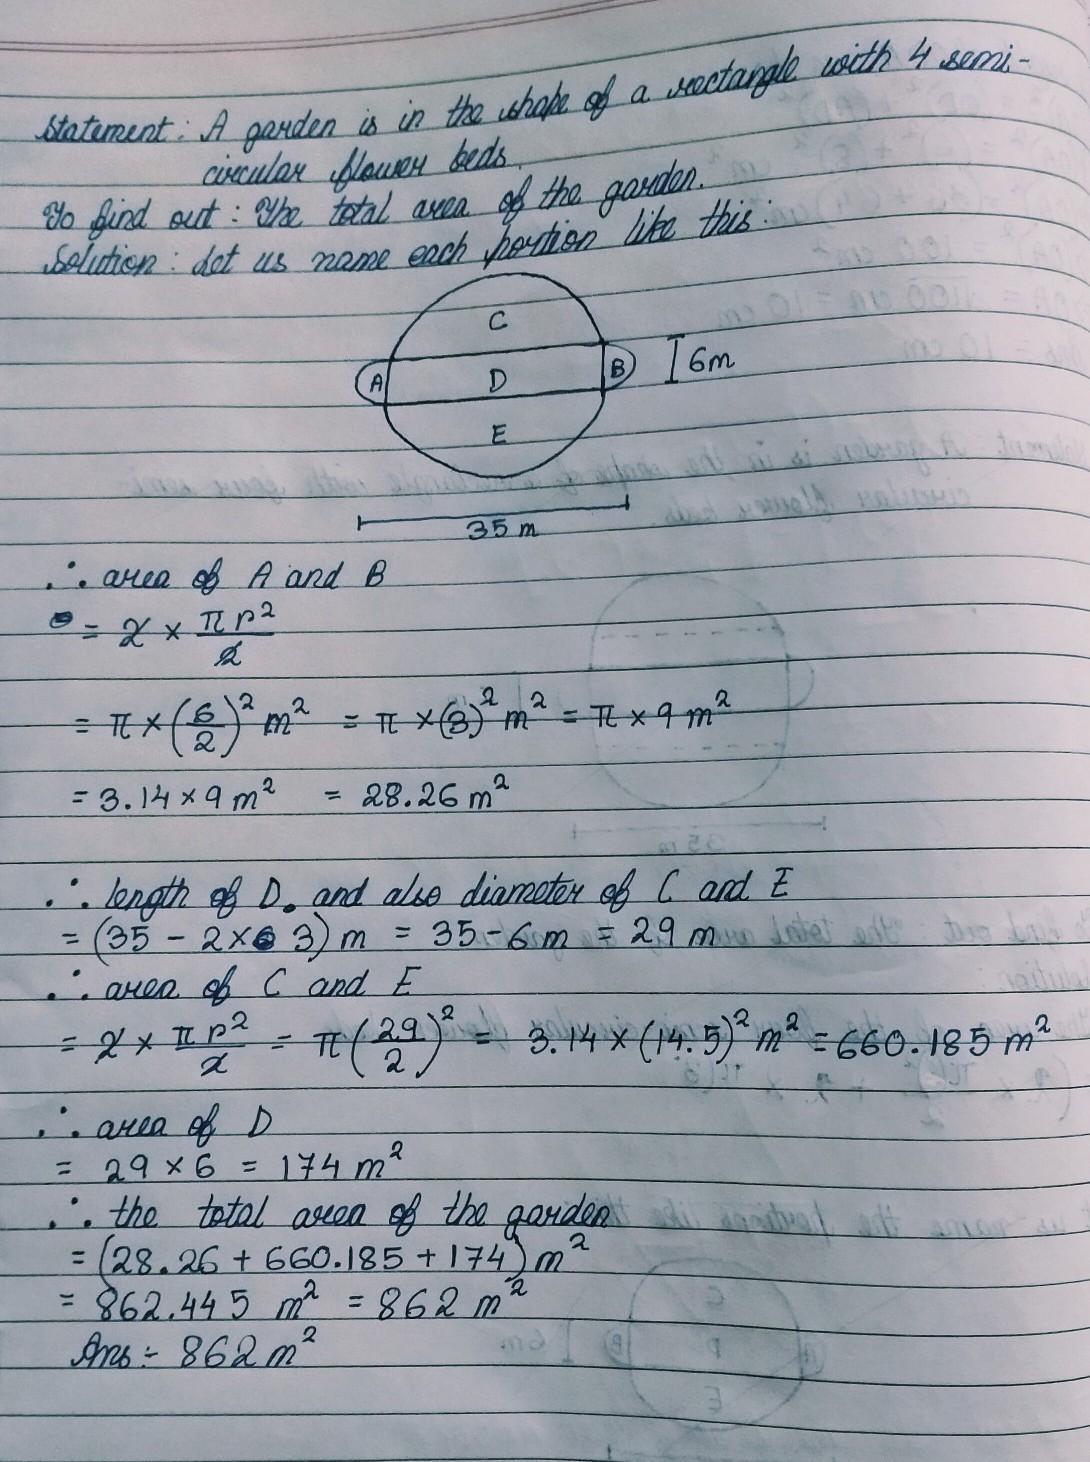 Statement: A garden is in the shape of a rectangle with 4 semi-
circular flower beds.
To find out: The total area of the garden.
Solution: Let us name each portion like this:
C
A D B 6m
E
35 m
∴ area of A and B
= 2 × πr²/2
= π × (6/2)² m² = π × (3)² m² = π × 9 m²
= 3.14 × 9 m² = 28.26 m²
∴ length of D. and also diameter of C and E
= (35 - 2× 3) m = 35 - 6m = 29 m
∴ area of C and E
= 2 × πr²/2 = π(29/2)² = 3.14 × (14.5)² m² = 660.185 m²
∴ area of D
= 29 × 6 = 174 m²
∴ the total area of the garden
= (28.26 + 660.185 + 174) m²
= 862.445 m² = 862 m²
Ans :- 862 m²